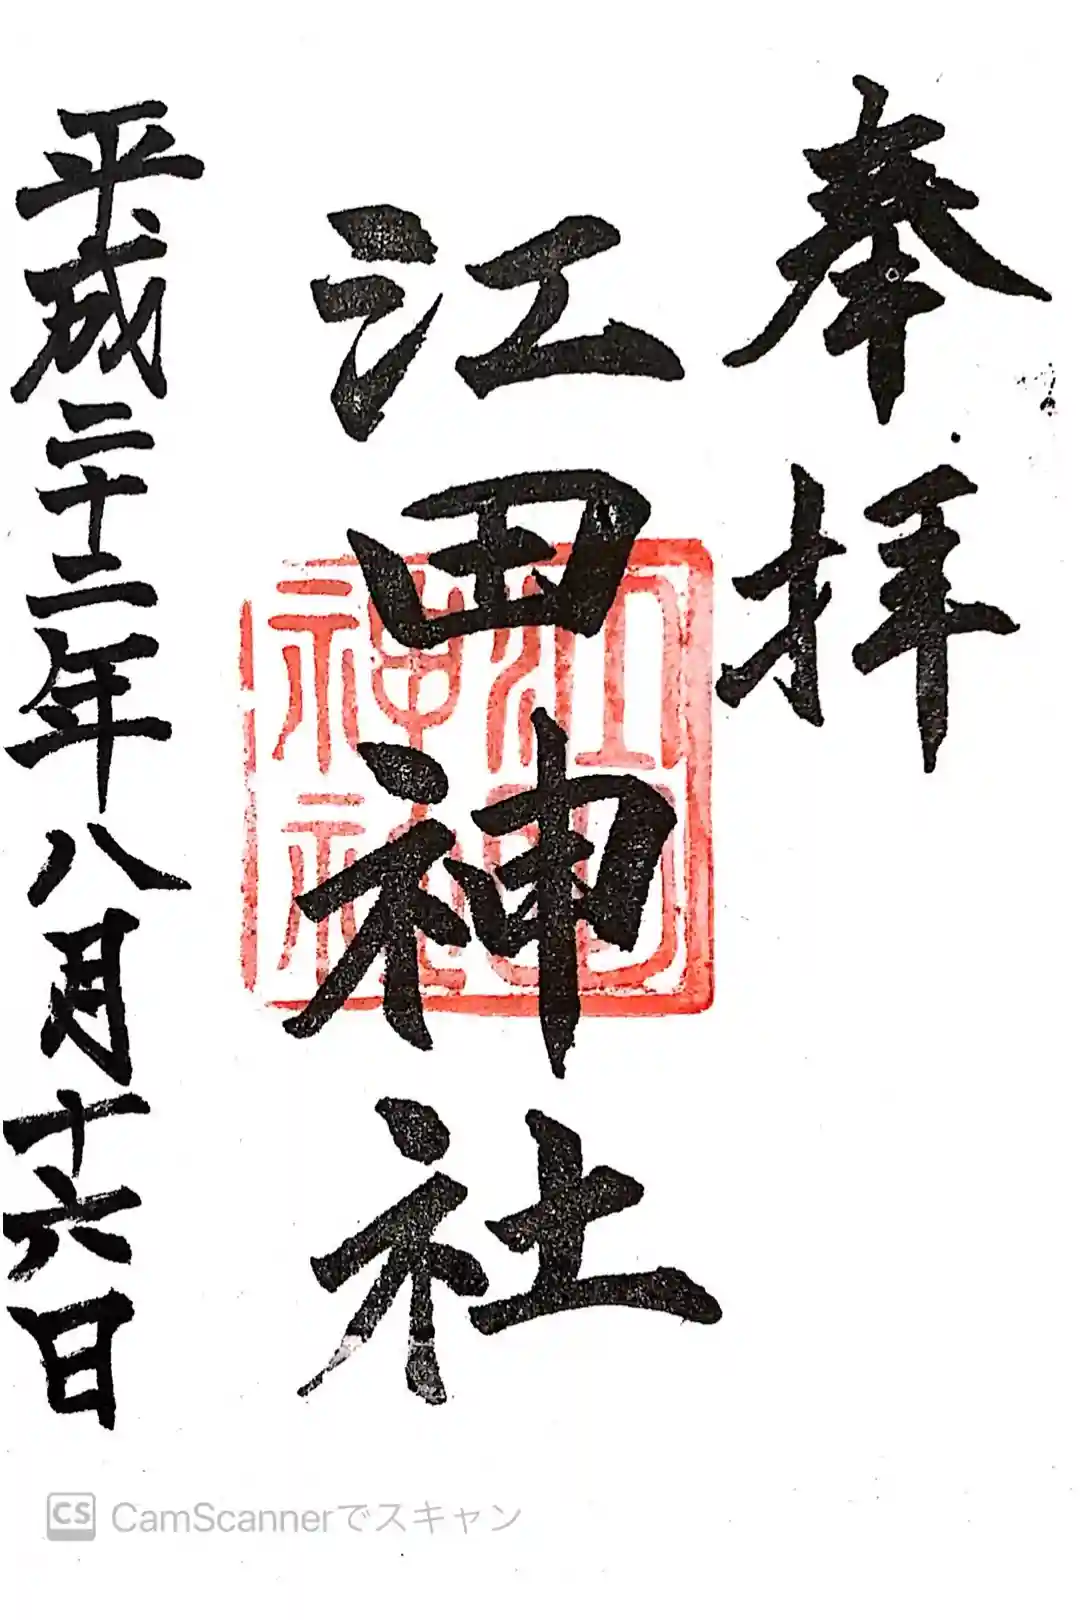 奉拝
江田神社
平成二十二年八月十六日
江田神社
CS CamScannerでスキャン